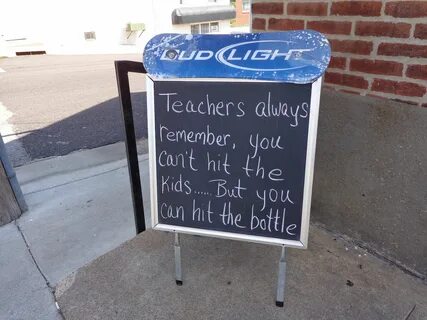 BUD LIGHT
Teachers always
remember, you
can't hit the
kids......But you
can hit the bottle